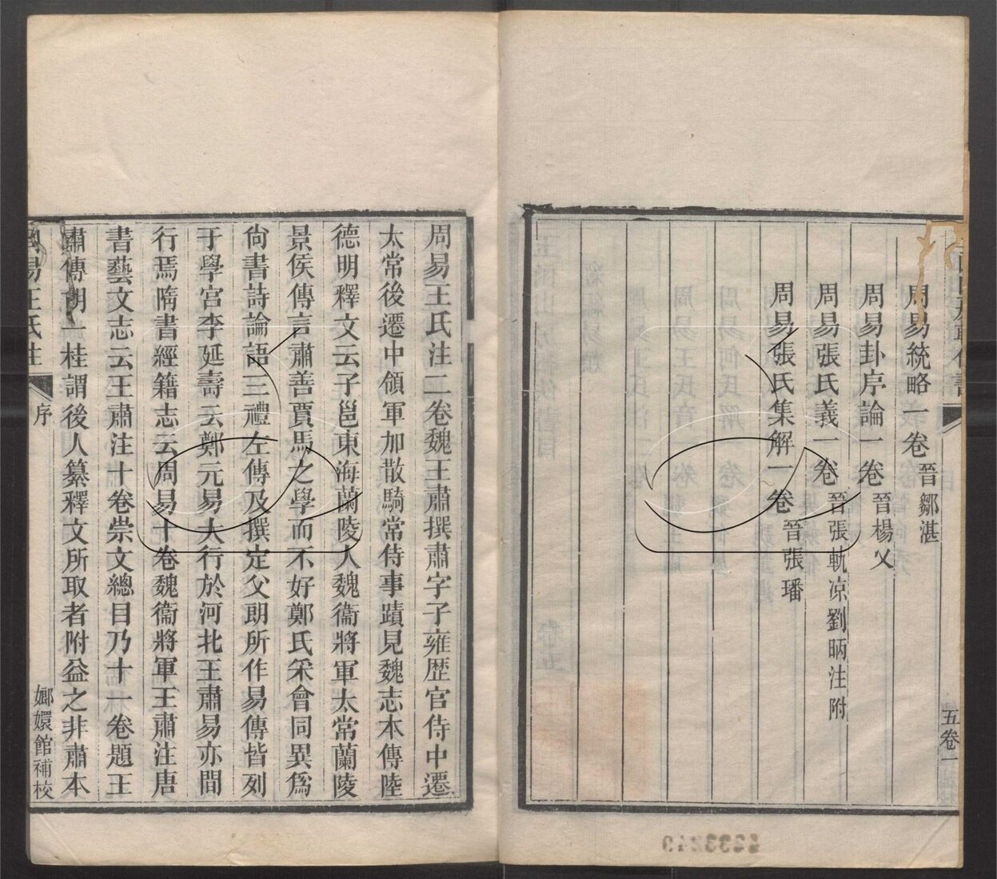 周易統略一卷晉鄒湛
周易卦序論一卷晉楊乂
周易張氏義一卷晉張軌凉劉昞注附
周易張氏集解一卷晉張璠
五卷一
周易王氏注二卷魏王肅撰肅字子雍歷官侍中遷
太常後遷中領軍加散騎常侍事蹟見魏志本傳陸
德明釋文云子邕東海蘭陵人魏衞將軍太常蘭陵
景侯傳言肅善賈馬之學而不好鄭氏采會同異爲
尙書詩論語三禮左傳及撰定父朗所作易傳皆列
于學官李延壽云鄭元易大行於河北王肅易亦間
行焉隋書經籍志云周易十卷魏衞將軍王肅注唐
書藝文志云王肅注十卷崇文總目乃十一卷題王
肅傳胡一桂謂後人纂釋文所取者附益之非肅本
周易王氏注
序
嫏嬛館補校